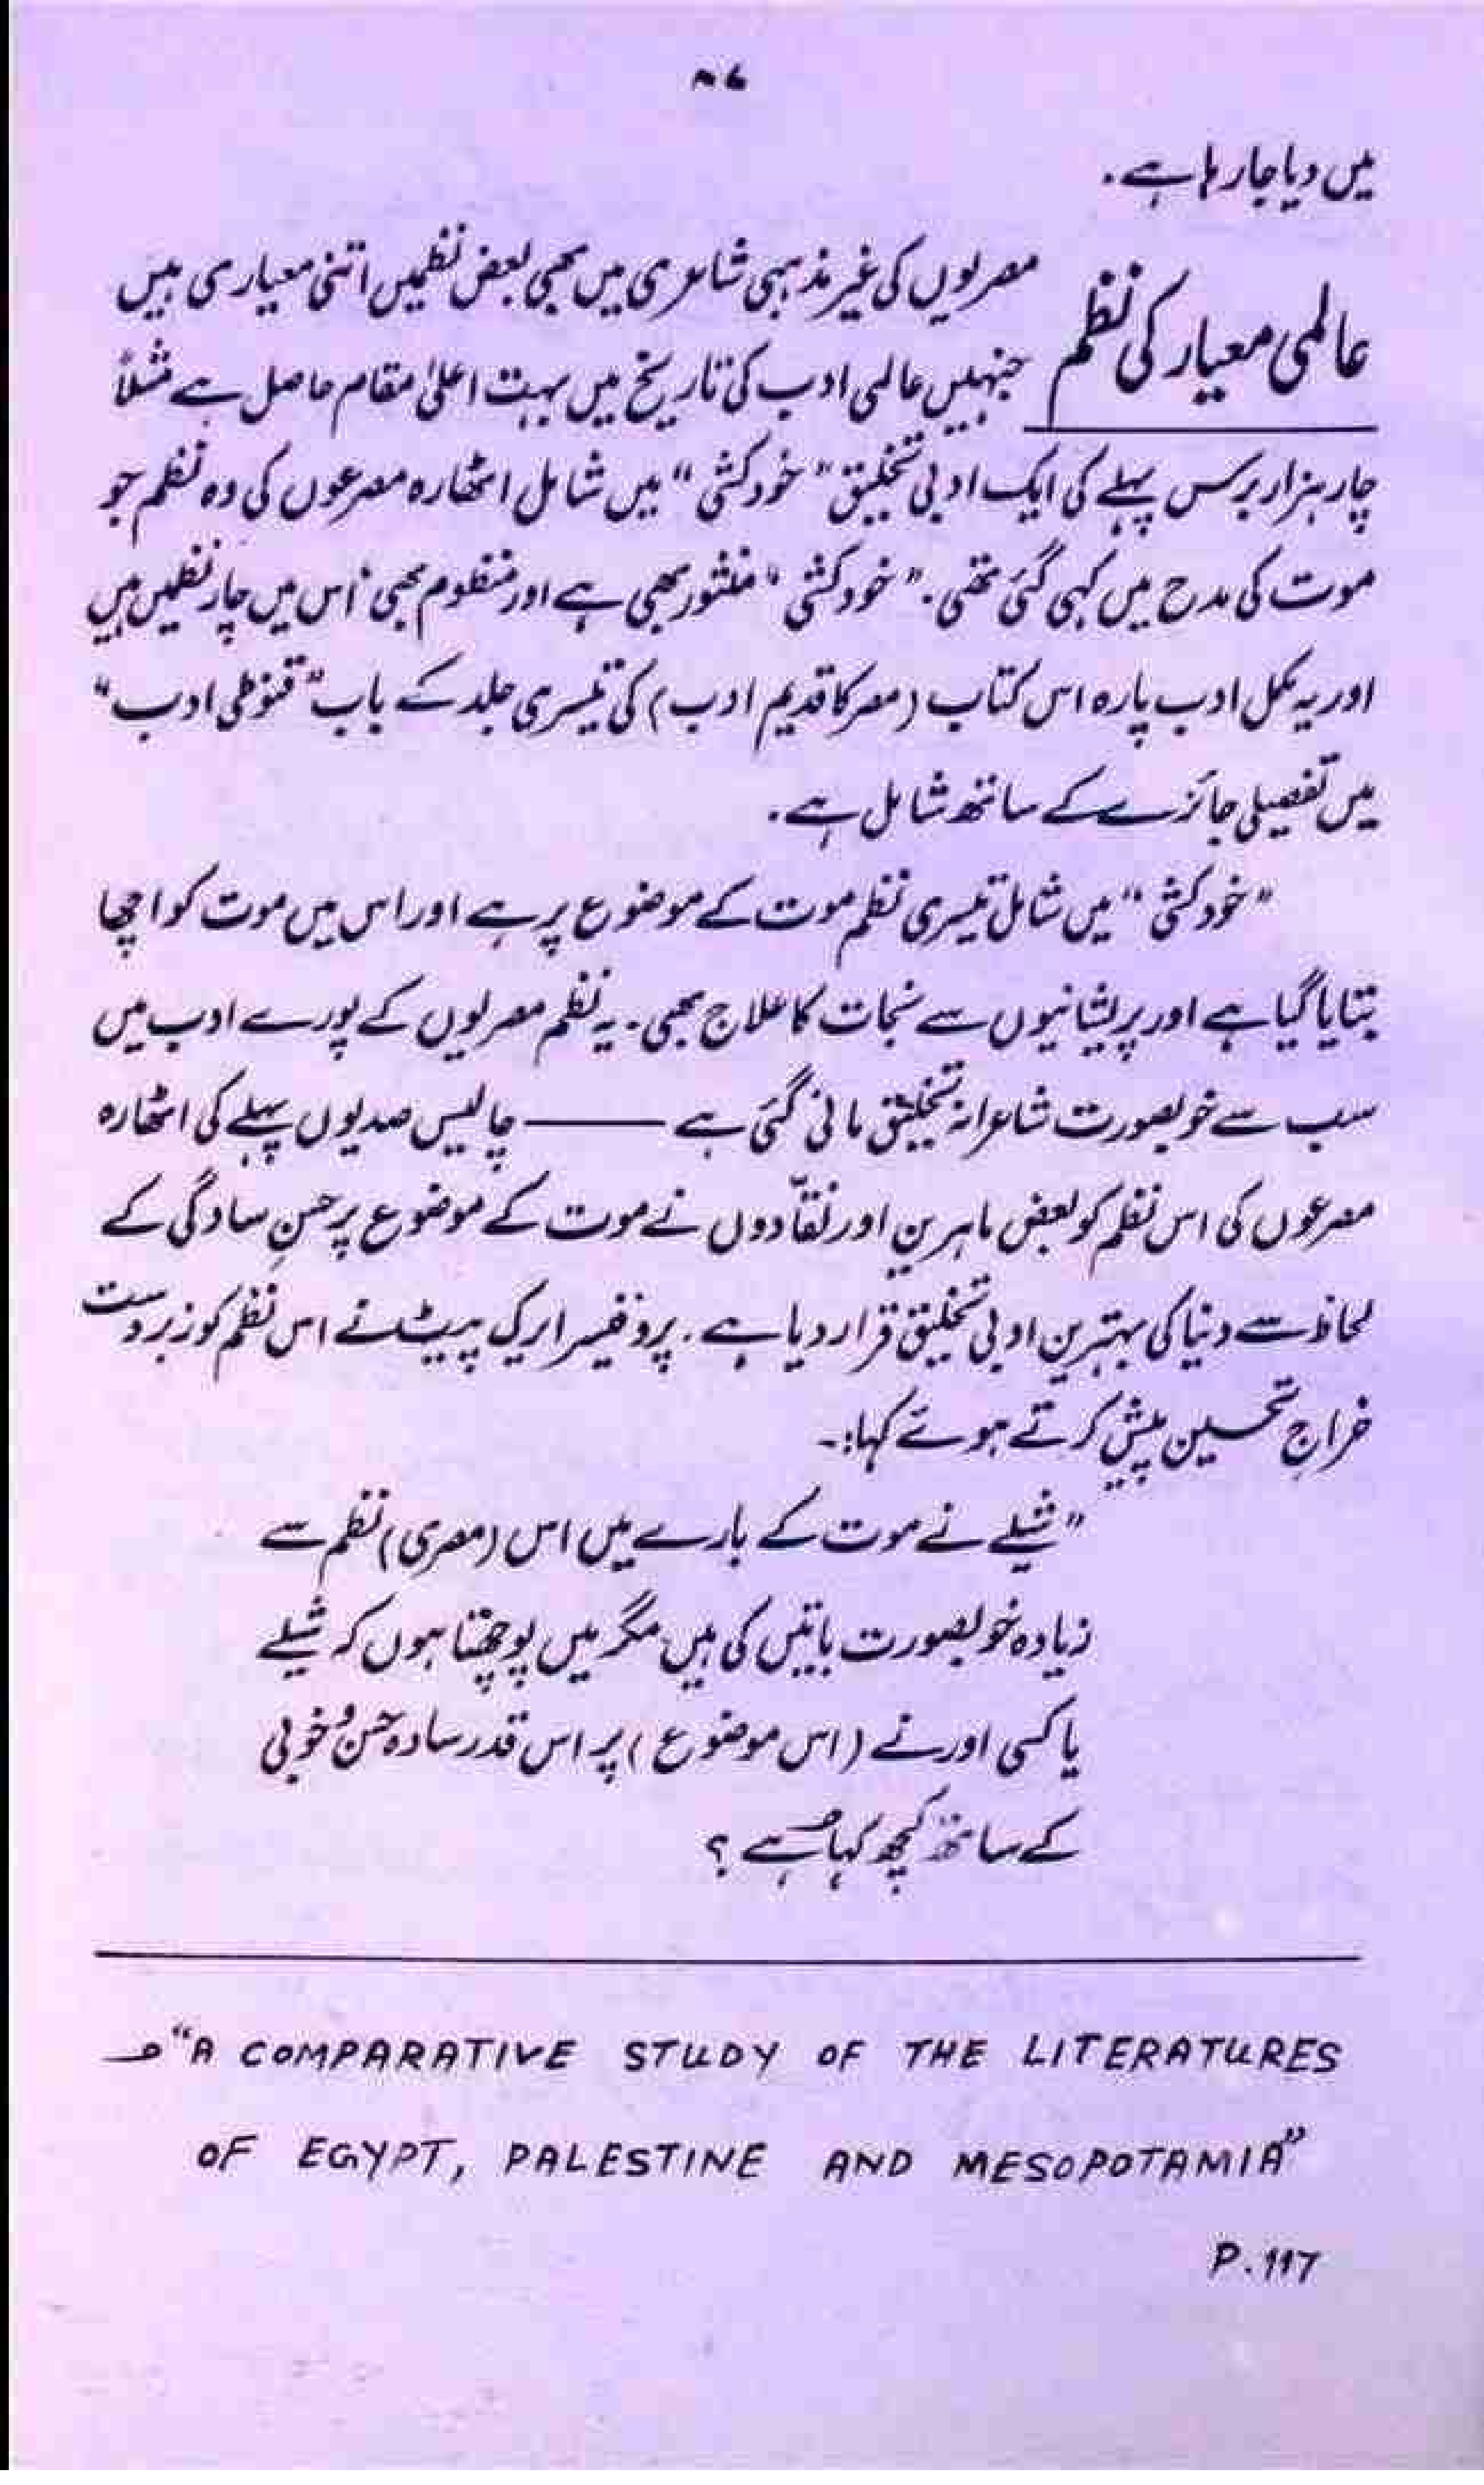 ۴۶
میں دیا جا رہا ہے.
عالمی معیار کی نظم
مصریوں کی غیر مذہبی شاعری میں بھی بعض نظمیں اتنی معیاری ہیں
جنہیں عالمی ادب کی تاریخ میں بہت اعلیٰ مقام حاصل ہے مثلاً
چار ہزار برس پہلے کی ایک ادبی تخلیق "خود کشی" میں شامل اٹھارہ مصرعوں کی وہ نظم جو
موت کی مدح میں کہی گئی تھی. "خود کشی" منثور بھی ہے اور منظوم بھی اس میں چار نظمیں ہیں
اور یہ مکمل ادب پارہ اس کتاب (مصر کا قدیم ادب) کی تیسری جلد کے باب "قنوطی ادب"
میں تفصیلی جائزے کے ساتھ شامل ہے.
"خود کشی" میں شامل تیسری نظم موت کے موضوع پر ہے اور اس میں موت کو اچھا
بتایا گیا ہے اور پریشانیوں سے نجات کا علاج بھی۔ یہ نظم مصریوں کے پورے ادب میں
سب سے خوبصورت شاعرانہ تخلیق مانی گئی ہے ——— چالیس صدیوں پہلے کی اٹھارہ
مصرعوں کی اس نظم کو بعض ماہرین اور نقّادوں نے موت کے موضوع پر حسنِ سادگی کے
لحاظ سے دنیا کی بہترین ادبی تخلیق قرار دیا ہے. پروفیسر ایرک پیٹ نے اس نظم کو زبردست
خراجِ تحسین پیش کرتے ہوئے کہا:۔
"شیلے نے موت کے بارے میں اس (مصری) نظم سے
زیادہ خوبصورت باتیں کی ہیں مگر میں پوچھتا ہوں کہ شیلے
یا کسی اور نے (اس موضوع) پر اس قدر سادہ حسن و خوبی
کے ساتھ کچھ کہا ہے ؟
"A COMPARATIVE STUDY OF THE LITERATURES
OF EGYPT, PALESTINE AND MESOPOTAMIA"
P. 117